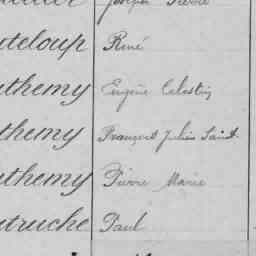 Joseph Pierre
uteloup René
uthemy Eugène Célestin
uthemy François Julien Saint
uthemy Pierre Marie
utruche Paul